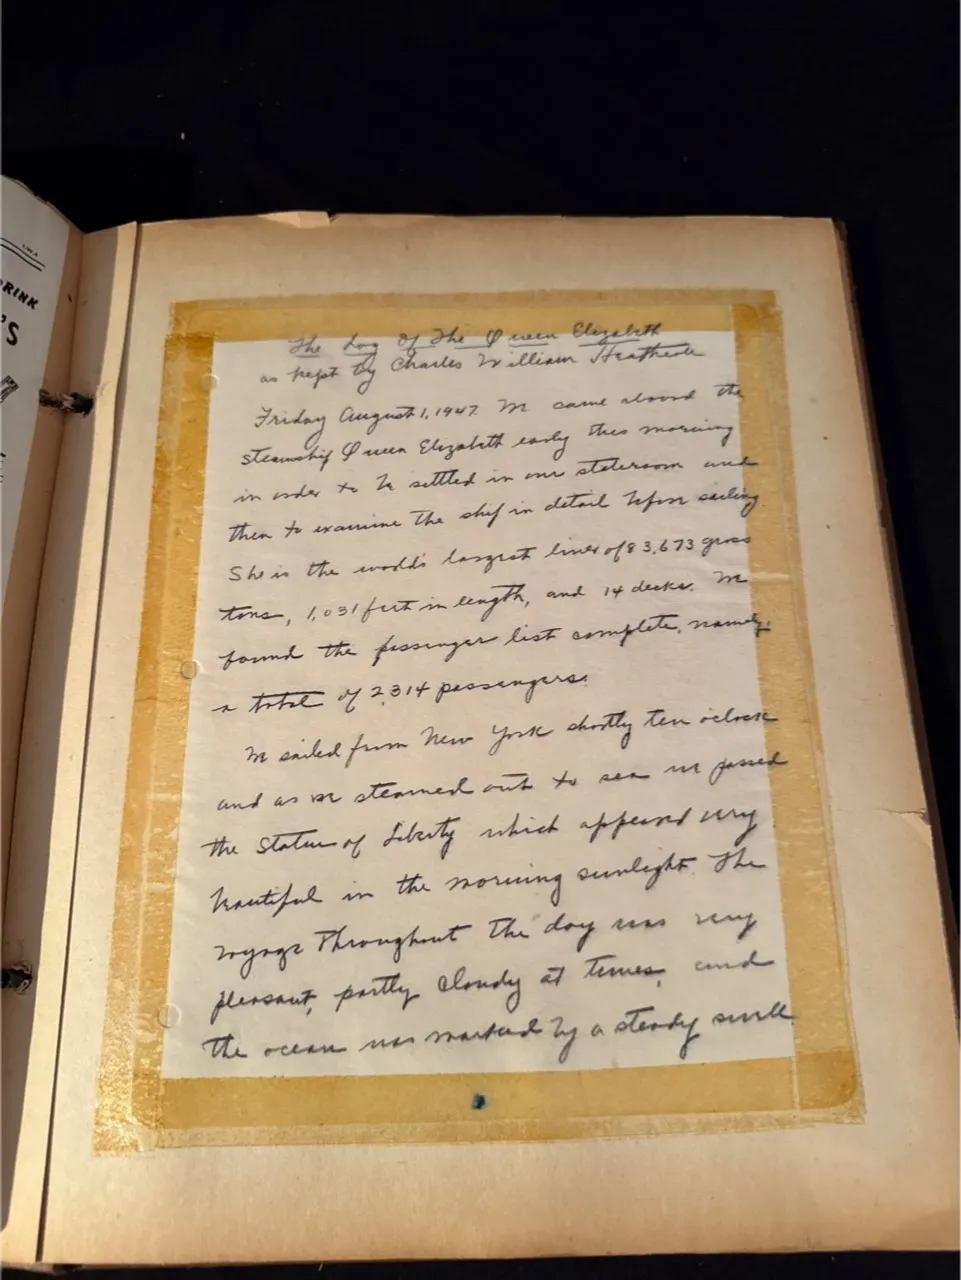 RINK
'S
The Log Of The Queen Elizabeth
as kept by Charles William
Friday August 1, 1947. We came aboard the
steamship Queen Elizabeth early this morning
in order to be settled in our stateroom and
then to examine the ship in detail before sailing.
She is the world's largest liner of 83,673 gross
tons, 1,031 feet in length, and 14 decks. We
found the passenger list complete, namely,
a total of 2,314 passengers.
We sailed from New York shortly ten o'clock
and as we steamed out to sea we passed
the Statue of Liberty which appeared very
beautiful in the morning sunlight. The
voyage throughout the day was very
pleasant, partly cloudy at times, and
the ocean was marked by a steady swell.